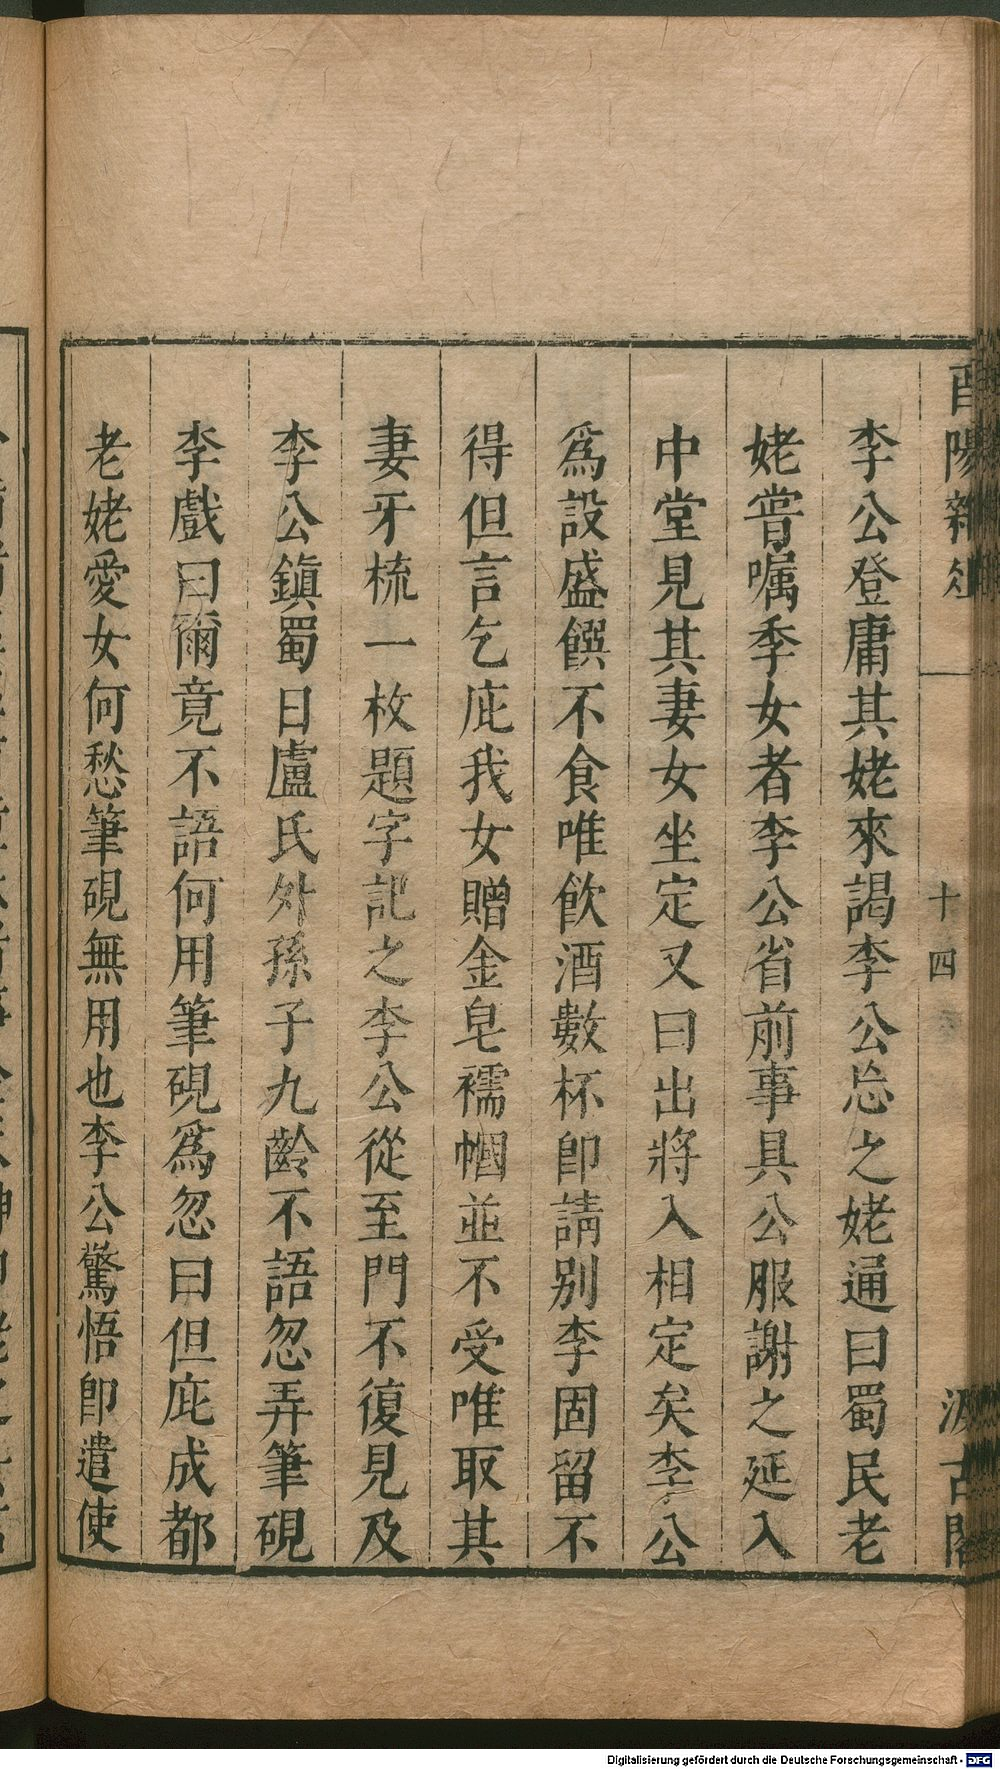 酉陽雜俎
十四
汲古閣
李公登庸其姥來謁李公㤀之姥通曰蜀民老
姥嘗囑季女者李公省前事具公服謝之延入
中堂見其妻女坐定又曰出將入相定矣李公
爲設盛饌不食唯飲酒數杯卽請別李固留不
得但言乞庇我女贈金皂襦幗並不受唯取其
妻牙梳一枚題字記之李公從至門不復見及
李公鎭蜀日盧氏外孫子九齡不語忽弄筆硯
李戲曰爾竟不語何用筆硯爲忽曰但庇成都
老姥愛女何愁筆硯無用也李公驚悟卽遣使
Digitalisierung gefördert durch die Deutsche Forschungsgemeinschaft - DFG